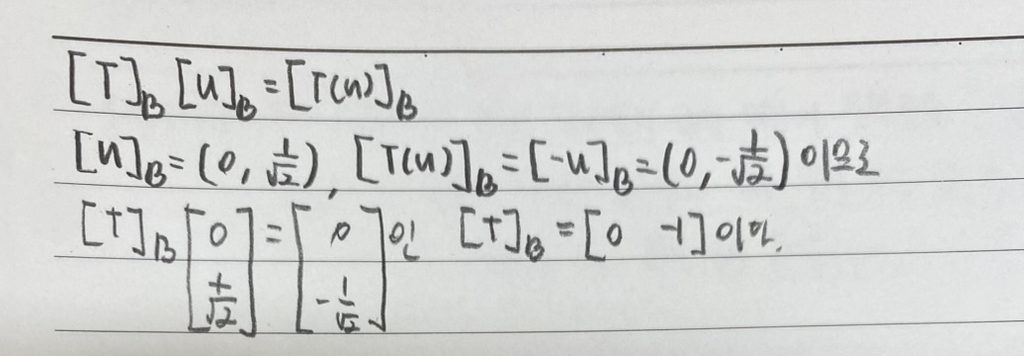 [T]_B [u]_B = [T(u)]_B
[u]_B = (0, 1/√2), [T(u)]_B = [-u]_B = (0, -1/√2) 이므로
[T]_B [0 1/√2] = [0 -1/√2]인 [T]_B = [0 -1]이다.